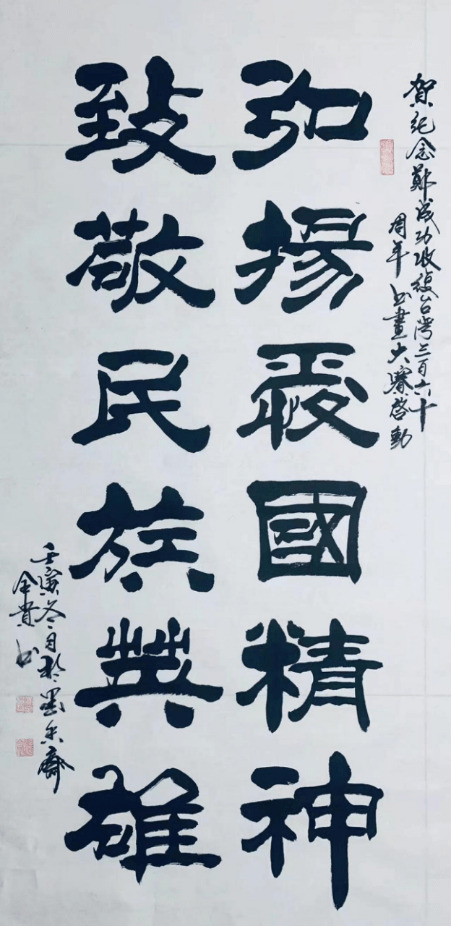 賀紀念鄭成功收復台灣三百六十
周年书畫大賽啓動
弘揚愛國精神
致敬民族英雄
壬寅冬月於墨香齋
金貴书